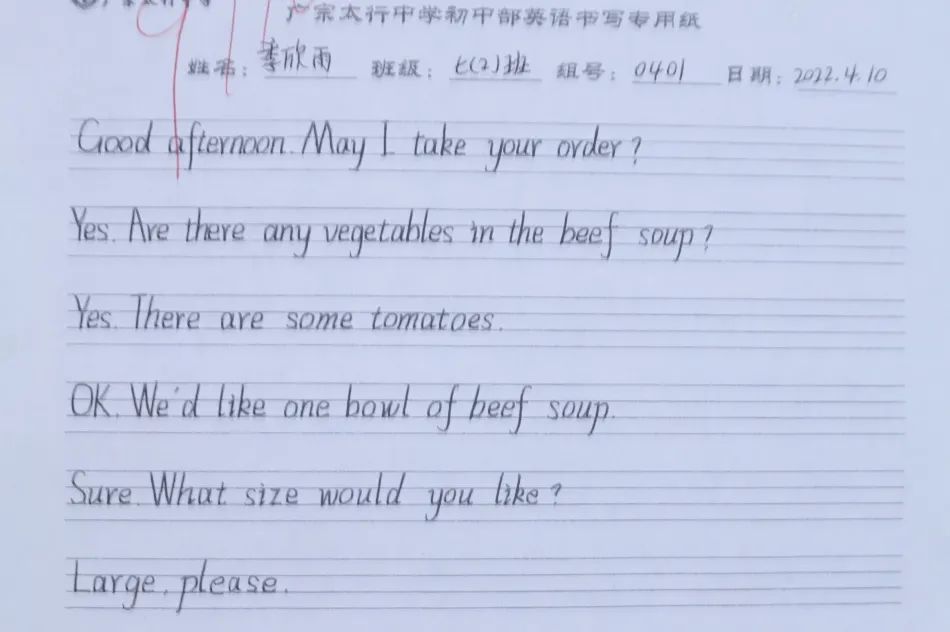 广宗太行中学初中部英语书写专用纸
姓名：季欣雨 班级：七(2)班 组号：0401 日期：2022.4.10
Good afternoon. May I take your order?
Yes. Are there any vegetables in the beef soup?
Yes. There are some tomatoes.
OK. We'd like one bowl of beef soup.
Sure. What size would you like?
Large, please.